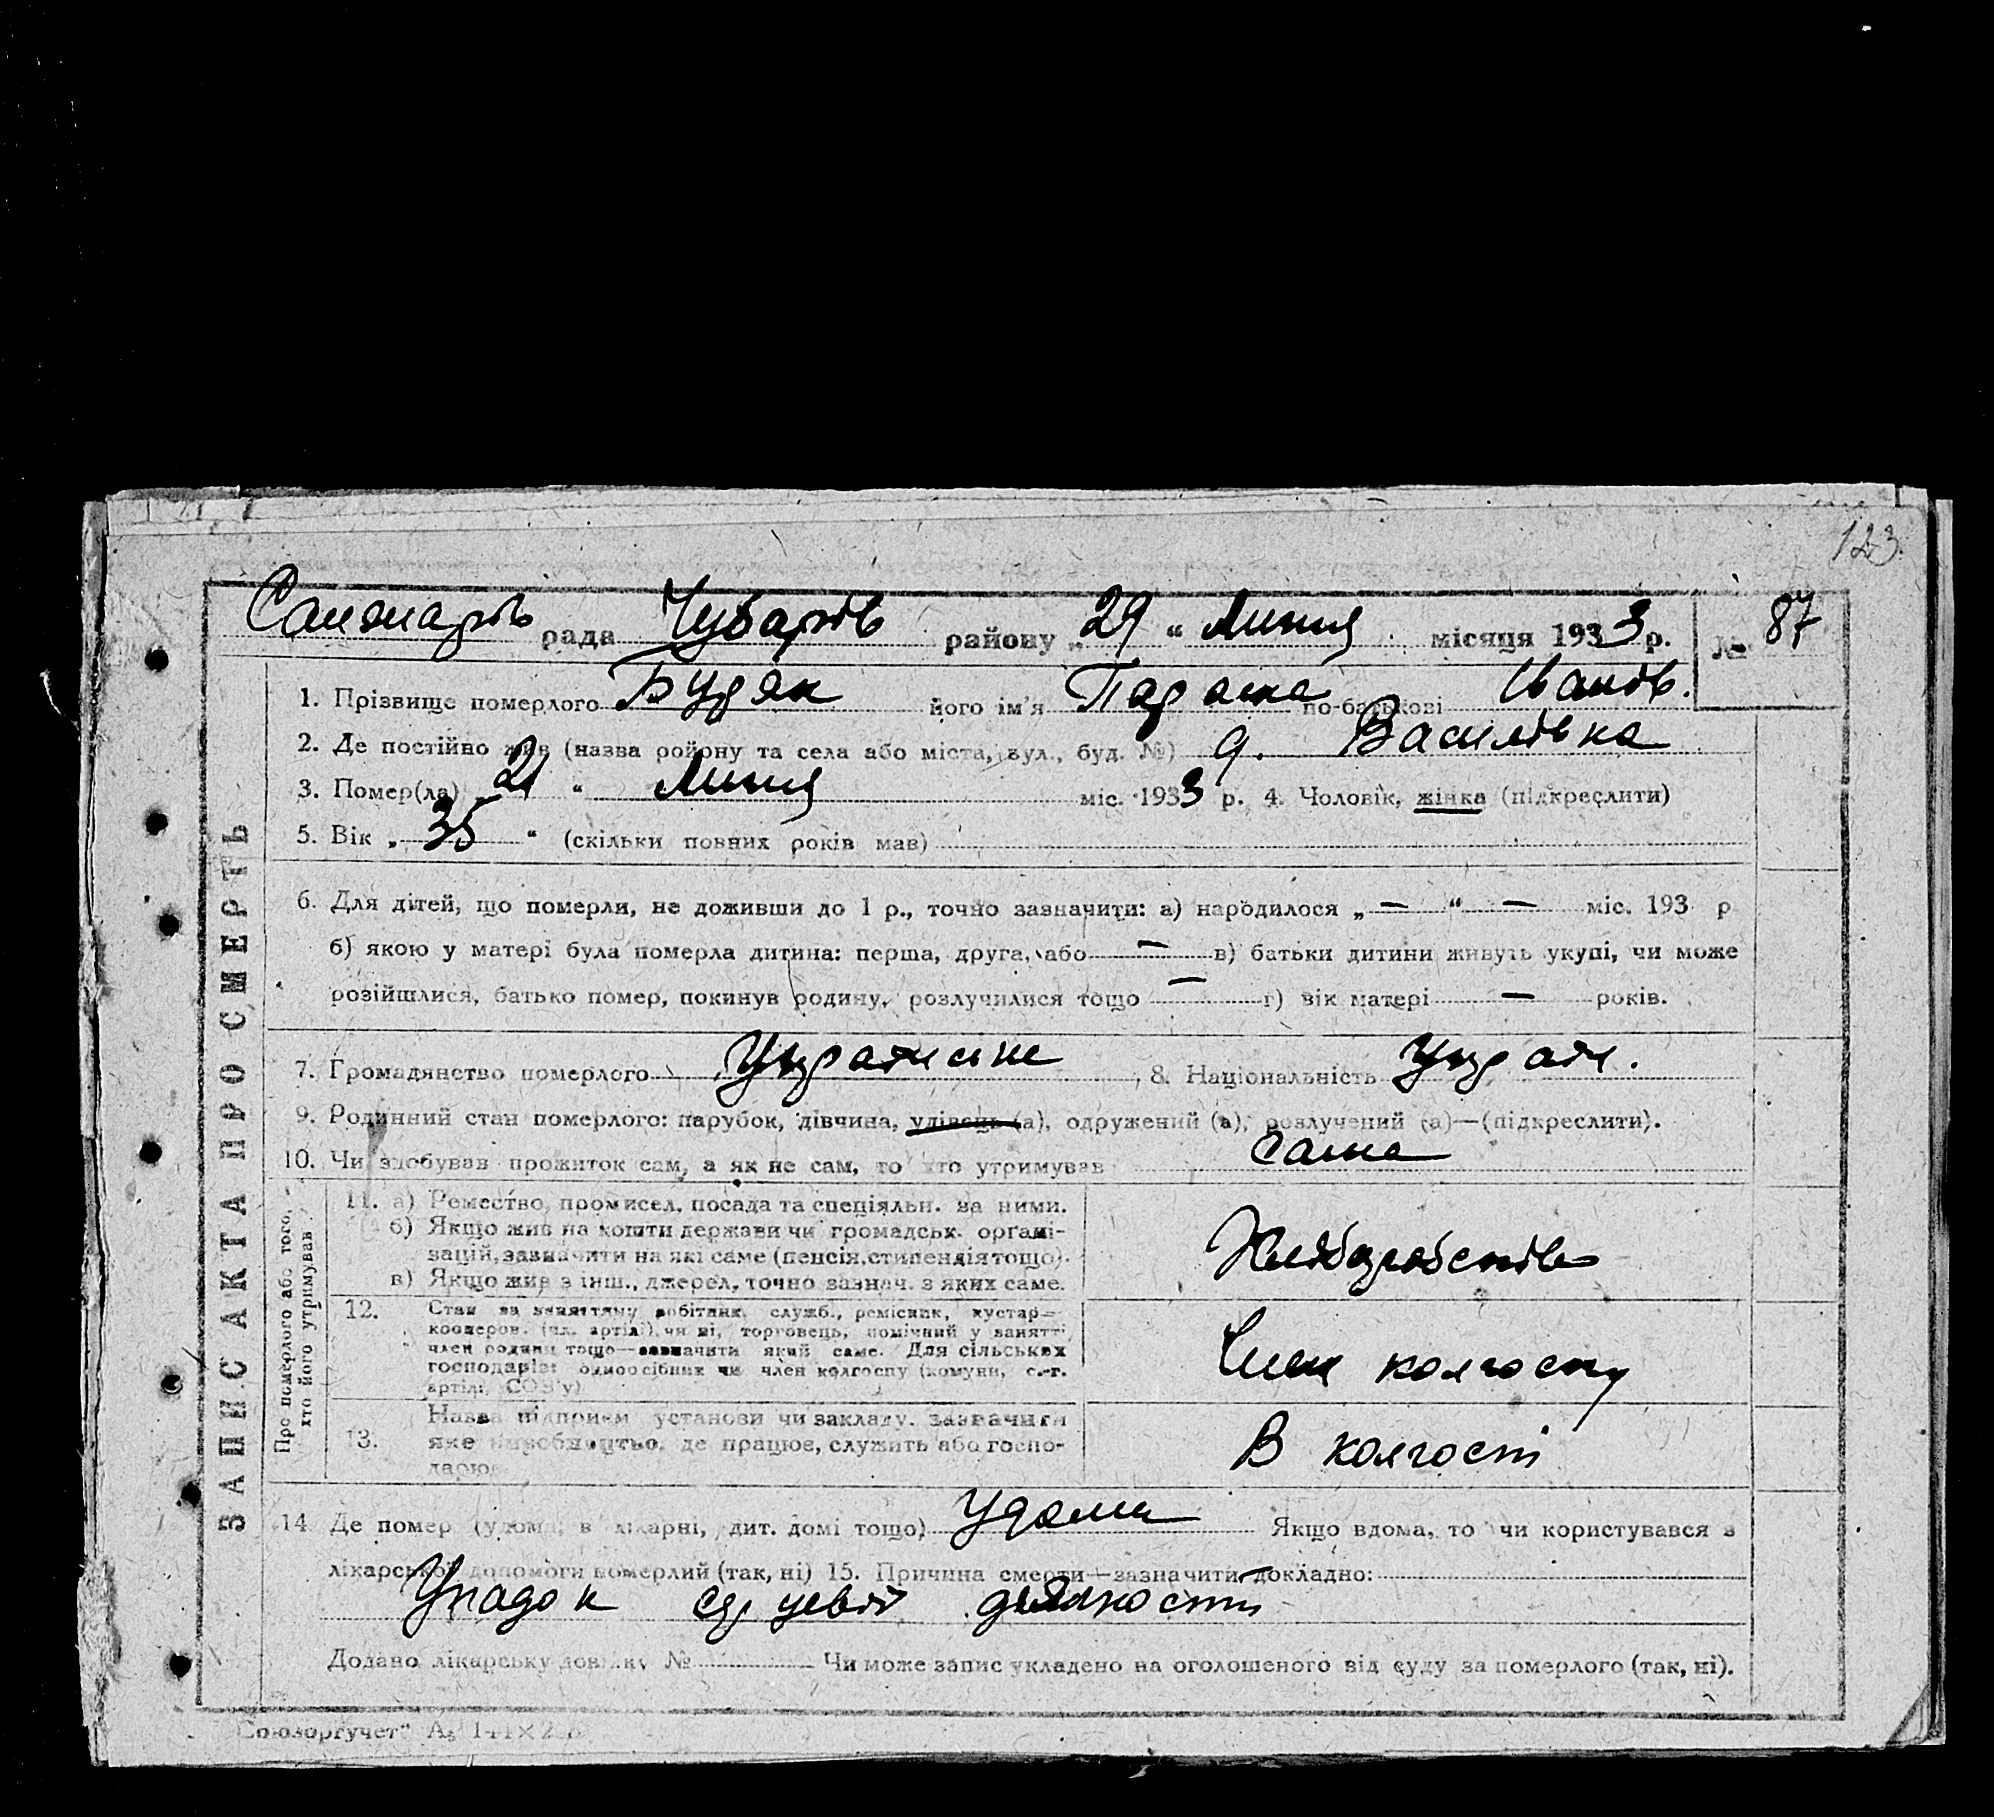 123.
Санжарів рада Чубарів району „29“ Липня місяця 1933 р. № 87
ЗАПИС АКТА ПРО СМЕРТЬ
1. Прізвище померлого Будяк його ім'я Параска по-батькові Іванів.
2. Де постійно жив (назва ройону та села або міста, вул., буд. №) д. Василівка
3. Помер(ла) „21“ Липня міс. 1933 р. 4. Чоловік, жінка (підкреслити)
5. Вік „35“ (скільки повних років мав)
6. Для дітей, що померли, не доживши до 1 р., точно зазначити: а) народилося „—“ — міс. 193 р
б) якою у матері була померла дитина: перша, друга, або — в) батьки дитини живуть укупі, чи може
розійшлися, батько помер, покинув родину, розлучилися тощо — г) вік матері — років.
7. Громадянство померлого Украйнське, 8. Національність Украй.
9. Родинний стан померлого: парубок, дівчина, удівець (а), одружений (а), розлучений (а)—(підкреслити).
10. Чи здобував прожиток сам, а як не сам, то хто утримував сама
Про померлого або того, хто його утримував
11. а) Ремество, промисел, посада та спеціяльн. за ними.
б) Якщо жив на кошти держави чи громадськ. органі-
зацій, зазначити на які саме (пенсія, стипендія тощо).
в) Якщо жив з інш., джерел, точно зазнач. з яких саме.
Хліборобстів
12. Стан за заняттям: робітник, служб., ремісник, кустар—
кооперов. (чл. артілі), чи ні, торговець, помічний у занятті
член родини тощо—зазначити який саме. Для сільських
господарів: одноосібник чи член колгоспу (комуни, с.-г.
артілі, СОЗ'у)
Член колгоспу
13. Назва підприєм установи чи закладу. зазначити
яке виробництво, де працює, служить або госпо-
дарює
В колгоспі
14 Де помер (удома, в лікарні, дит. домі тощо) Удома Якщо вдома, то чи користувався з
лікарської допомоги померлий (так, ні) 15. Причина смерти—зазначити докладно:
Упадок сердцевої діяльності
Додано лікарську довідку № Чи може запис укладено на оголошеного від суду за померлого (так, ні).
Союзоргучет"